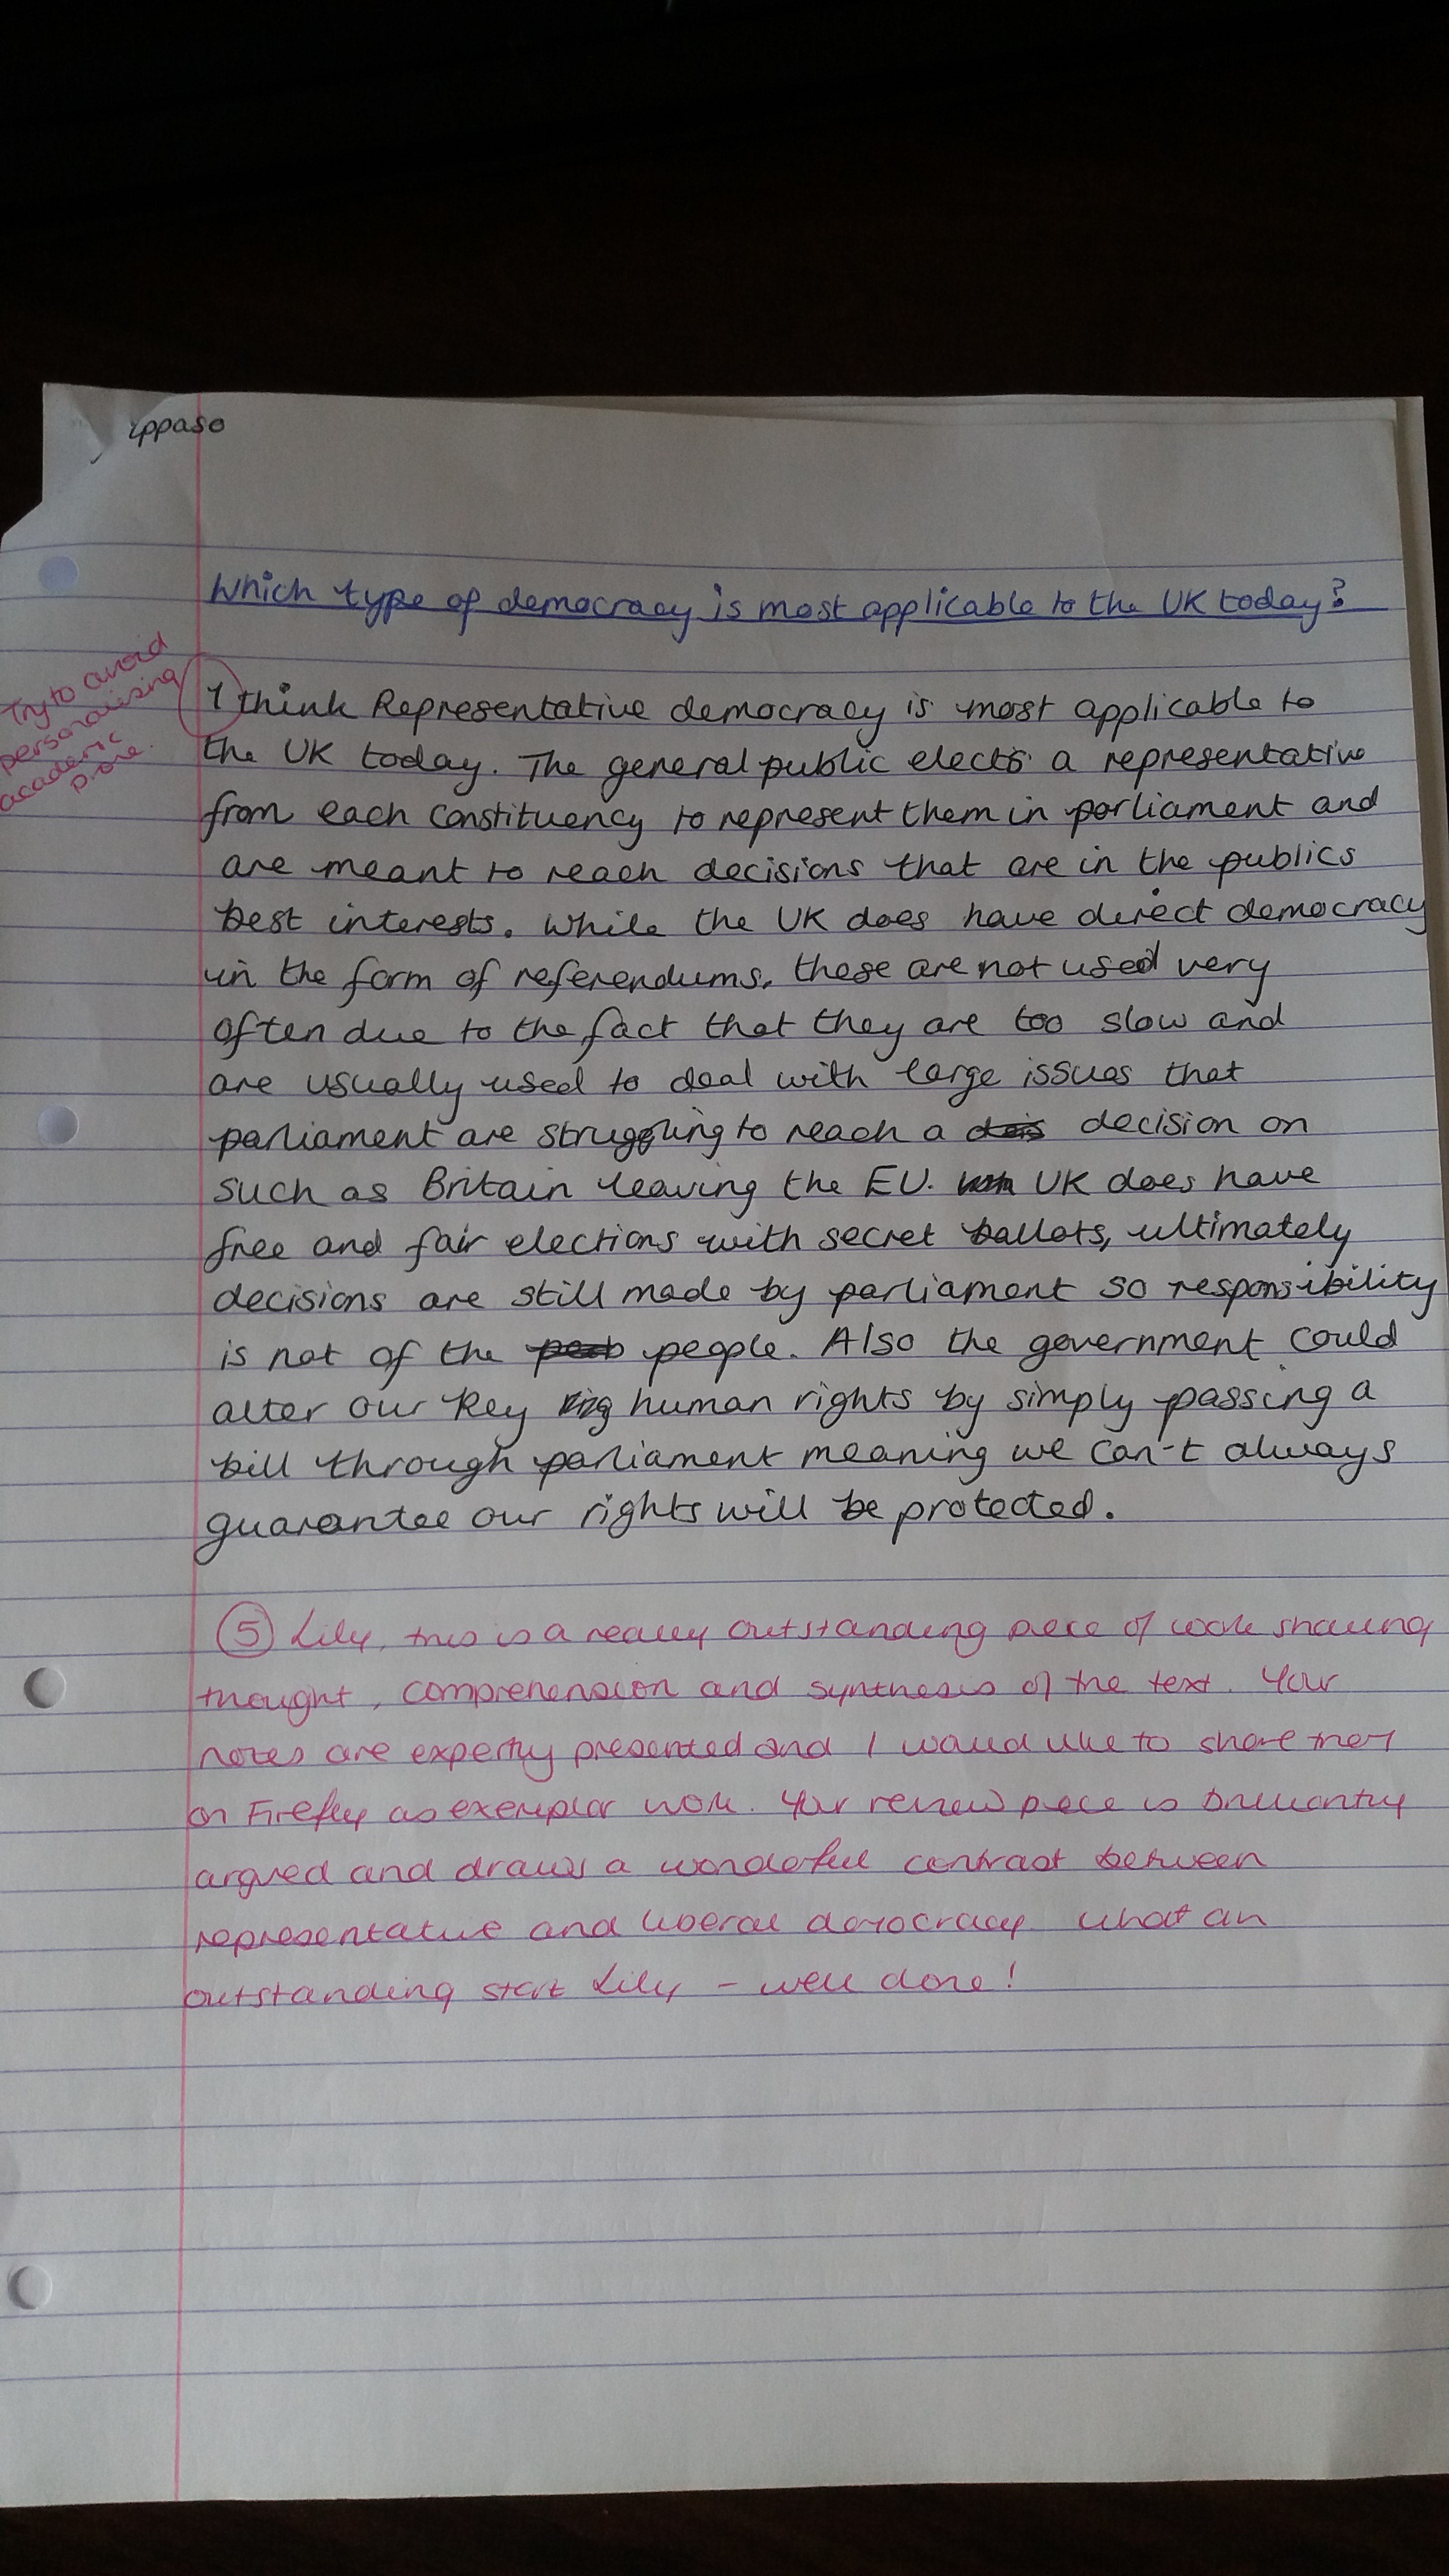 Which type of democracy is most applicable to the UK today?
Try to avoid
personalising
academic
prose.
I think Representative democracy is most applicable to
the UK today. The general public elects a representative
from each constituency to represent them in parliament and
are meant to reach decisions that are in the publics
best interests. While the UK does have direct democracy
in the form of referendums, these are not used very
often due to the fact that they are too slow and
are usually used to deal with large issues that
parliament are struggling to reach a decision on
such as Britain leaving the EU. UK does have
free and fair elections with secret ballots, ultimately
decisions are still made by parliament so responsibility
is not of the people. Also the government could
alter our key human rights by simply passing a
bill through parliament meaning we can't always
guarantee our rights will be protected.
5 Lily, this is a really outstanding piece of work showing
thought, comprehension and synthesis of the text. Your
notes are expertly presented and I would like to share them
on Firefly as exemplar work. Your review piece is brilliantly
argued and draws a wonderful contrast between
representative and liberal democracy. What an
outstanding start Lily - well done!